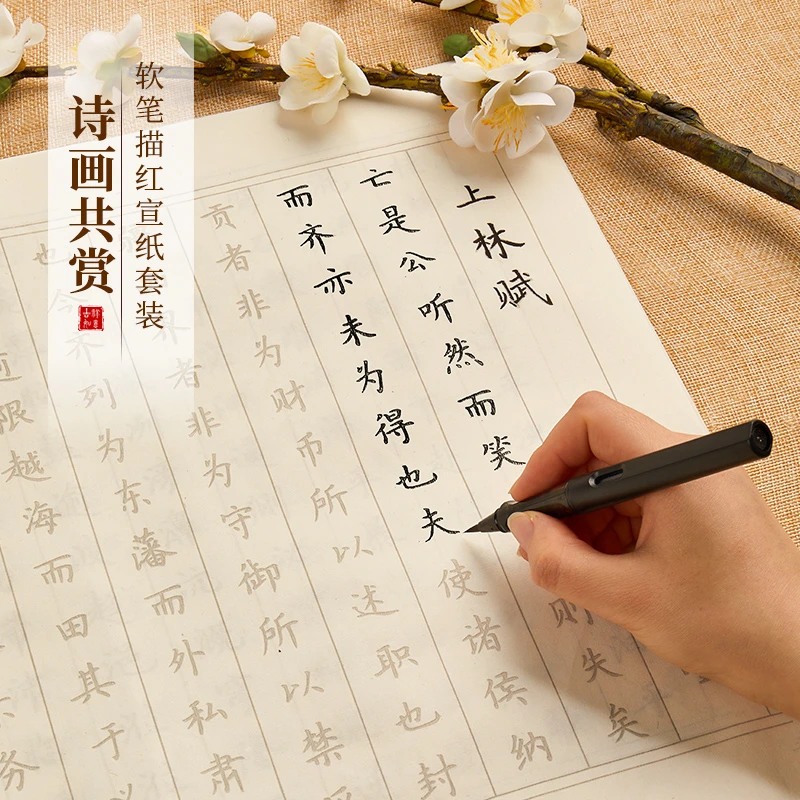 诗画共赏
软笔描红宣纸套装
上林赋
亡是公听然而笑
则失矣
而齐亦未为得也夫使诸侯纳
贡者非为财币所以述职也封
界者非为守御所以禁
也今齐列为东藩而外私肃
限越海而田其于义
务